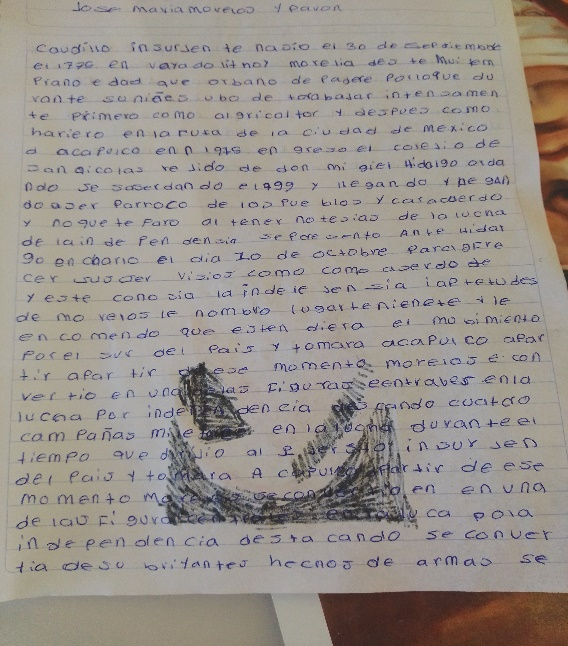 Jose maria morelos y pavon
Caudillo insurjen te nacio el 30 de Sepdiembde
el 1776 en vayadolitnoy morelia des te mui tem
Prano edad que orbano de padere Porloque du
rante su niñes ubo de tarabajar intensamen
te Primero como algricoltor y despues como
hariero en la ruta de la ciudad de mexico
a acapulco en n 1976 en greso el colesio de
san nicolas re sido de don mi giel Hidalgo orda
ndo se soserdando e 1499 y llegando y he gan
do aser Parroco de los Pue blos y caracuerdo
y noque te Faro al tener notesias de la lucha
de la in de Pen densia se Pere sento Ante Hidal
go en chario el dia 20 de octobre Para ofre
cer sus ser visios como como acerdo te
y este cono sia la inde le sen sia iap tetudes
de mo relos le nombro lugartenienete y le
en co mendo que esten diera el mo bimiento
Por el sur del Pais y tomara acapulco apar
tir apar tir de ese momento morelos e con
ver tio en una de las Figuras centrales en la
lucha Par inde Pen dencia des cando cuatro
cam Pañas mile en la lucha durante el
tiempo que al insur sen
del Pais y tomara A Partir de ese
mo mento en en una
de las Figura luca pola
inde pen dencia desta cando se conver
tia desu britantes hechos de armas se